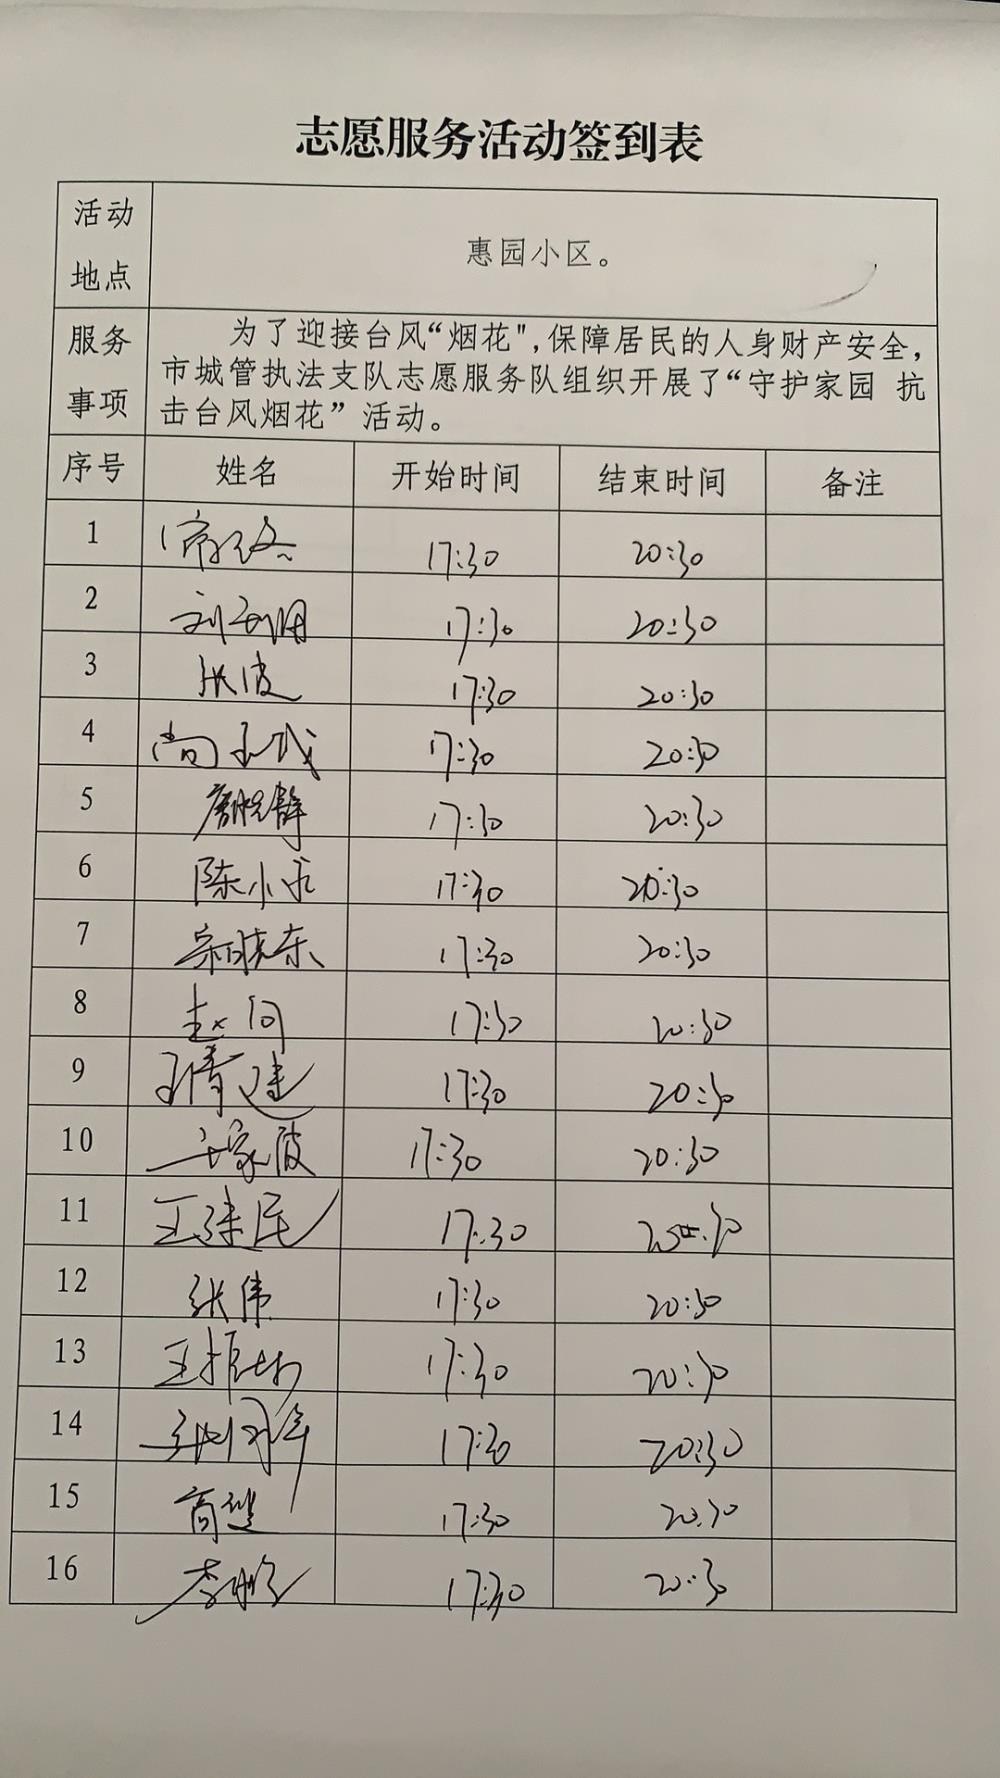 志愿服务活动签到表
活动地点 惠园小区。
服务事项 为了迎接台风“烟花"，保障居民的人身财产安全，
市城管执法支队志愿服务队组织开展了“守护家园 抗
击台风烟花” 活动。
序号 姓名 开始时间 结束时间 备注
1 17:30 20:30
2 17:30 20:30
3 张波 17:30 20:30
4 17:30 20:30
5 17:30 20:30
6 陈小 17:30 20:30
7 17:30 20:30
8 17:30 20:30
9 17:30 20:30
10 17:30 20:30
11 王建民 17:30
12 张伟 17:30 20:30
13 17:30 20:30
14 17:30 20:30
15 17:30 20:30
16 17:30 20:30